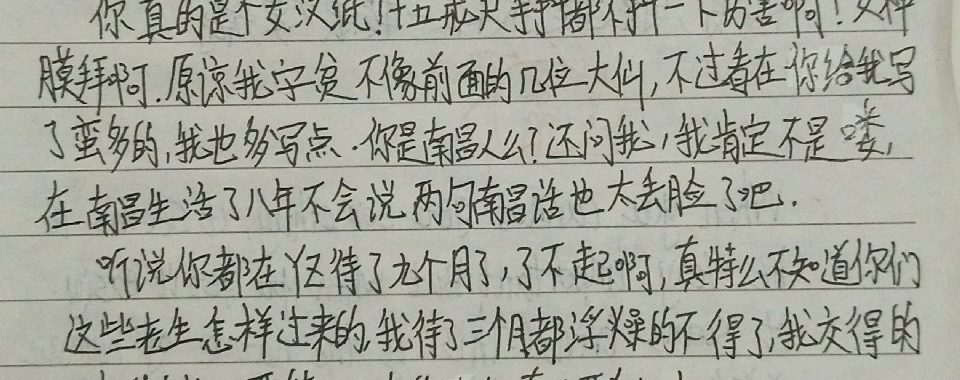 你真的是个女汉纸!十五戒尺手抖都不抖一下厉害啊!女神
膜拜啊.原谅我字贫不像前面的几位大仙,不过看在你给我写
了蛮多的,我也多写点.你是南昌人么?还问我,我肯定不是喽,
在南昌生活了八年不会说两句南昌话也太丢脸了吧.
听说你都在YZ待了九个月了,了不起啊,真特么不知道你们
这些老生怎样过来的,我待了三个月都浮燥的不得了,我交得的